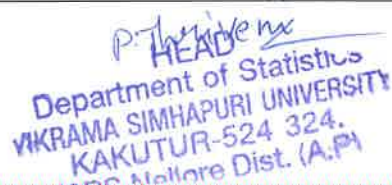 HEAD
Department of Statistics
VIKRAMA SIMHAPURI UNIVERSITY
KAKUTUR-524 324.
Nellore Dist. (A.P)